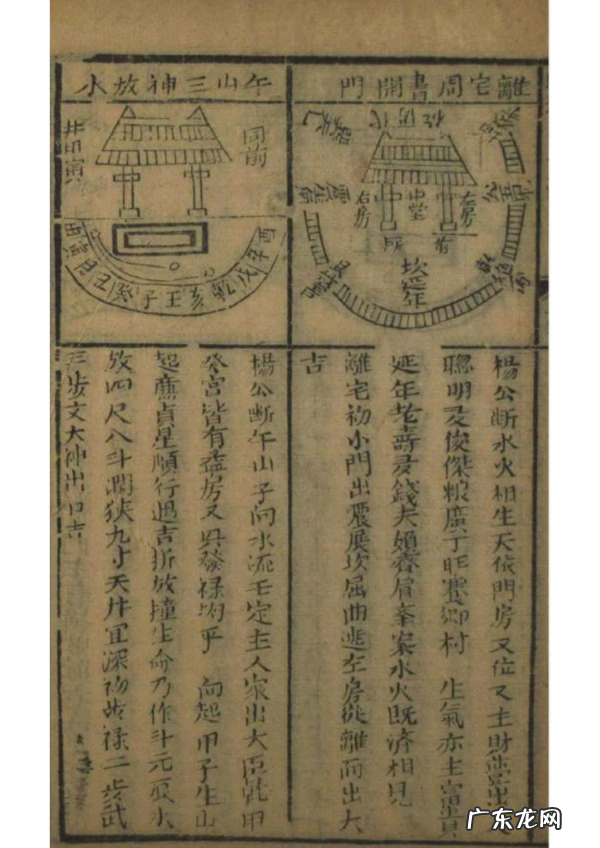 離宅周書開門
中堂
左房
右房
坎延年
楊公斷水火相生天依門房又位又主財豊出
聰明及俊傑粮廣丁旺蓋鄉村 生氣亦主富貴
延年老壽及錢夫婦齊眉案水火既濟相見
離宅初小門出震展坎屈曲進左房從離而出大
吉
午山三神放水
同前
井田寅
酉辛戌乾亥壬子癸丑艮寅甲
楊公斷午山子向水流壬定主人家出大臣乾甲
癸宮皆有益房又興發禄均乎 向起甲子生山
起廉貞星順行遇吉折放撞生命乃作斗元辰水
放四尺八斗濶狹九寸天井宜深初步禄二步武
三步文大神出口吉
广东龙网